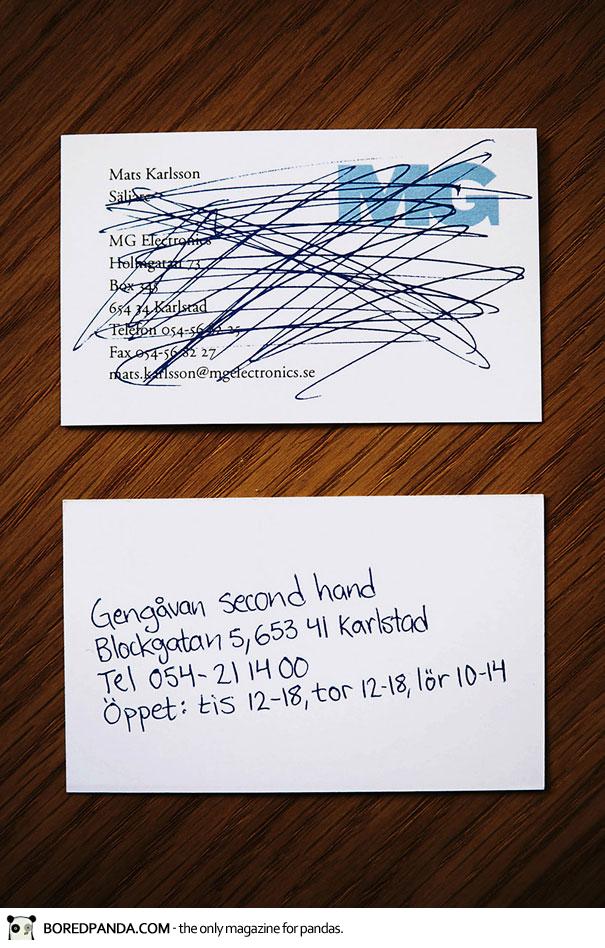 Mats Karlsson
Säljare
MG
MG Electronics
Holmgatan 73
Box 345
654 34 Karlstad
Telefon 054-56 82 25
Fax 054-56 82 27
mats.karlsson@mgelectronics.se
Gengåvan second hand
Blockgatan 5, 653 41 Karlstad
Tel 054-21 14 00
Öppet: tis 12-18, tor 12-18, lör 10-14
BOREDPANDA.COM - the only magazine for pandas.